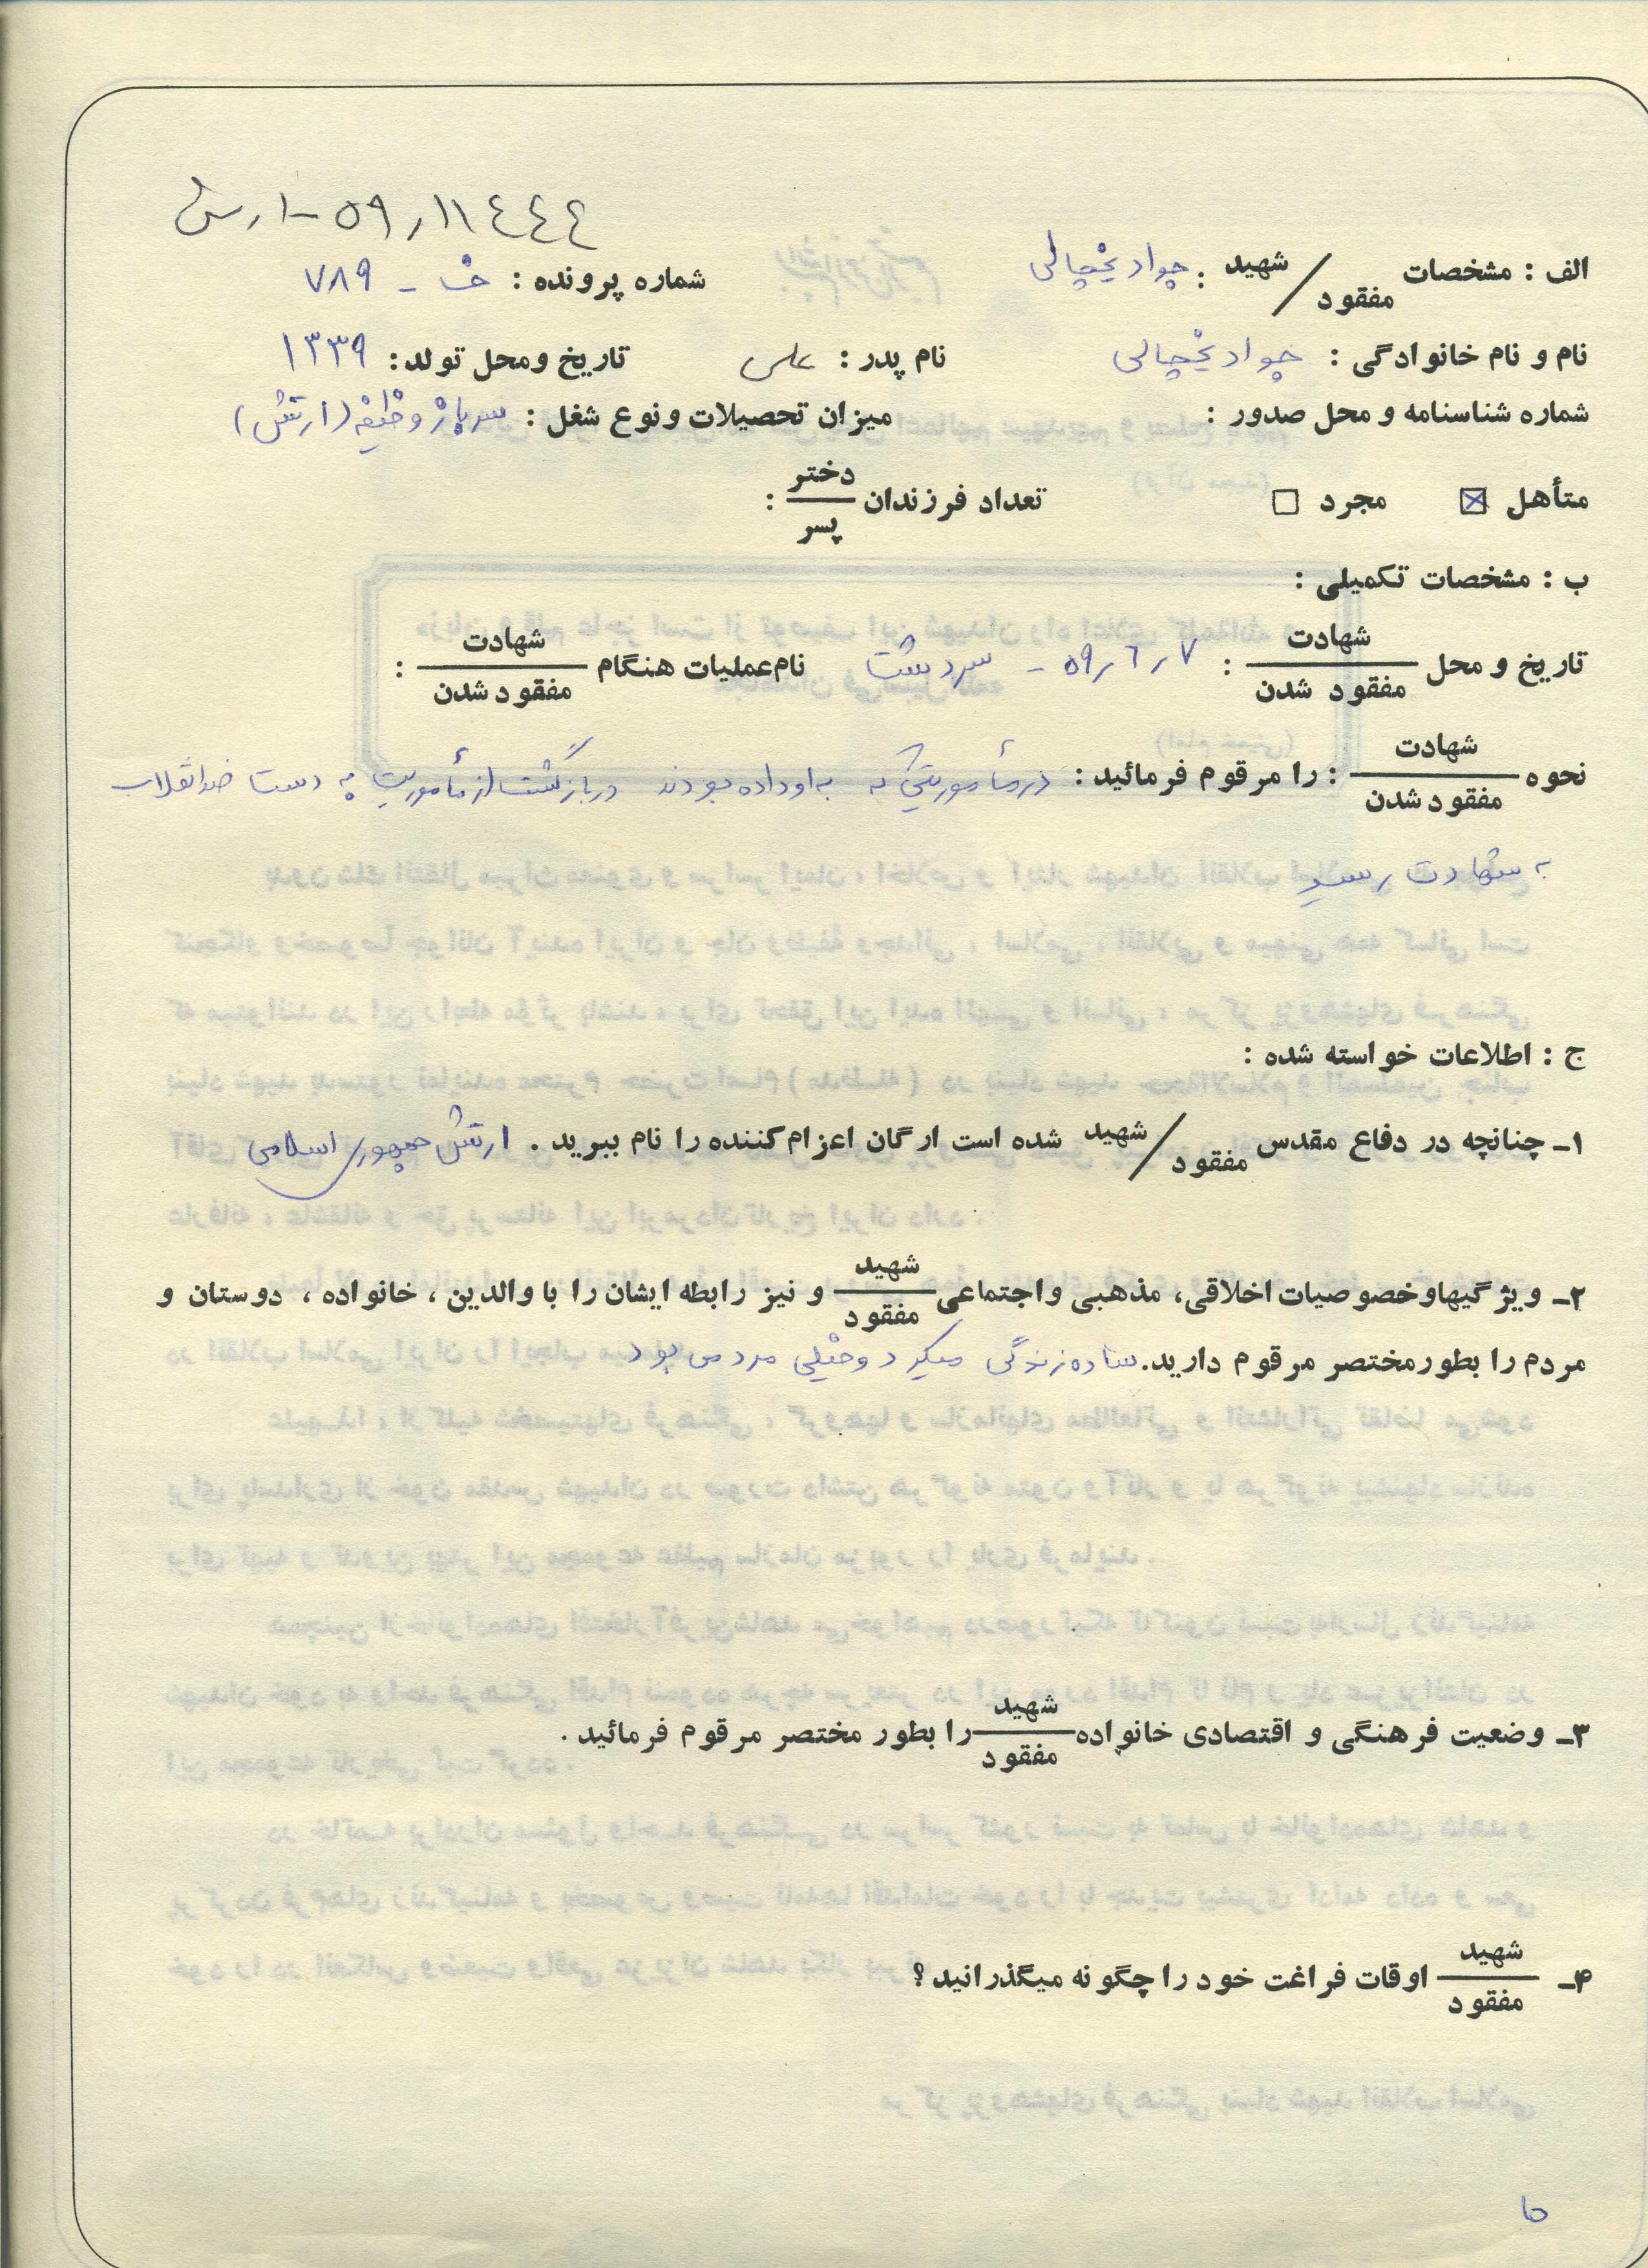 ۵۹٫۱۱٤٤٤ - ارتش
الف : مشخصات شهید / مفقود : جواد یخچالی
شماره پرونده : خ - ۷۸۹
نام و نام خانوادگی : جواد یخچالی نام پدر : علی تاریخ ومحل تولد: ۱۳۳۹
شماره شناسنامه و محل صدور : میزان تحصیلات ونوع شغل : سرباز وظیفه (ارتش)
متأهل ☒ مجرد ☐ تعداد فرزندان دختر / پسر :
ب : مشخصات تکمیلی :
تاریخ و محل شهادت / مفقود شدن : ۵۹٫۶٫۷ - سردشت نام عملیات هنگام شهادت / مفقود شدن :
نحوه شهادت / مفقود شدن : را مرقوم فرمائید : در مأموریتی که به او داده بودند در بازگشت از مأموریت به دست ضدانقلاب
به شهادت رسید
ج : اطلاعات خواسته شده :
۱ـ چنانچه در دفاع مقدس شهید / مفقود شده است ارگان اعزام کننده را نام ببرید . ارتش جمهوری اسلامی
۲ـ ویژگیهاوخصوصیات اخلاقی، مذهبی واجتماعی شهید / مفقود و نیز رابطه ایشان را با والدین ، خانواده ، دوستان و
مردم را بطورمختصر مرقوم دارید. ساده زندگی میکرد و خیلی مردمی بود
۳ـ وضعیت فرهنگی و اقتصادی خانواده شهید / مفقود را بطور مختصر مرقوم فرمائید .
۴ـ شهید / مفقود اوقات فراغت خود را چگونه میگذرانید ؟